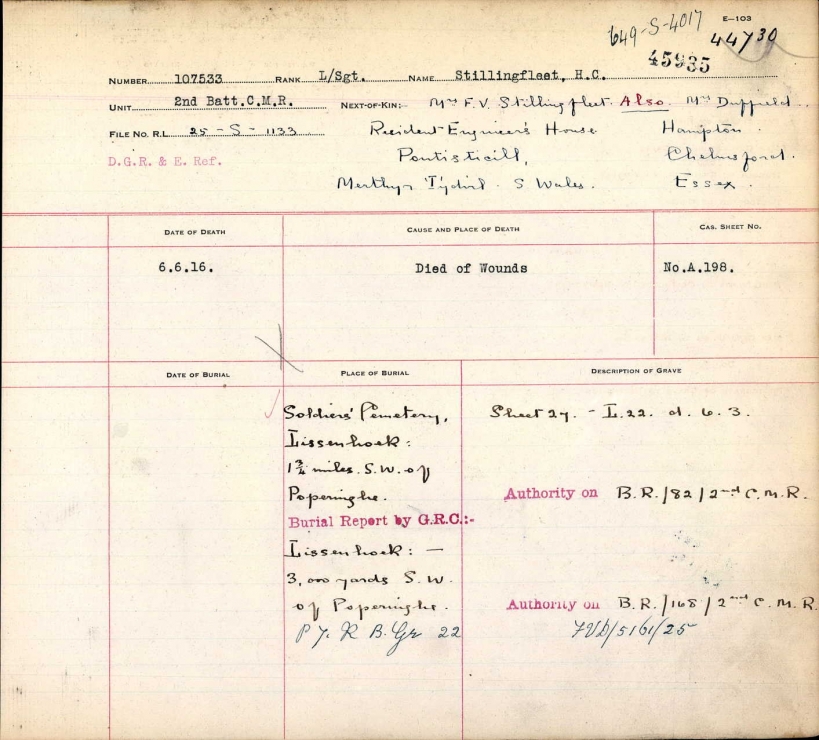 E-103
649-S-4017
44730
45935
NUMBER 107533 RANK L/Sgt. NAME Stillingfleet, H.C.
UNIT 2nd Batt.C.M.R. NEXT-OF-KIN: Mrs F.V. Stillingfleet. Also. Mrs Duffield.
FILE NO. R.L. 25-S-1133 Resident Engineer's House Hampton.
D.G.R. & E. Ref. Pontisticill, Chelmsford.
Merthyr Tydvil. S Wales. Essex.
DATE OF DEATH CAUSE AND PLACE OF DEATH CAS. SHEET NO.
6.6.16. Died of Wounds No.A.198.
DATE OF BURIAL PLACE OF BURIAL DESCRIPTION OF GRAVE
Soldiers' Cemetery, Sheet 27. - L.22. d. 6. 3.
Lissenhoek:
1¾ miles. S.W. of
Poperinghe. Authority on B.R./82/2nd C.M.R.
Burial Report by G.R.C.:-
Lissenhoek: —
3,000 yards S.W.
of Poperinghe. Authority on B.R./168/2nd C.M.R.
R B. Gr 22